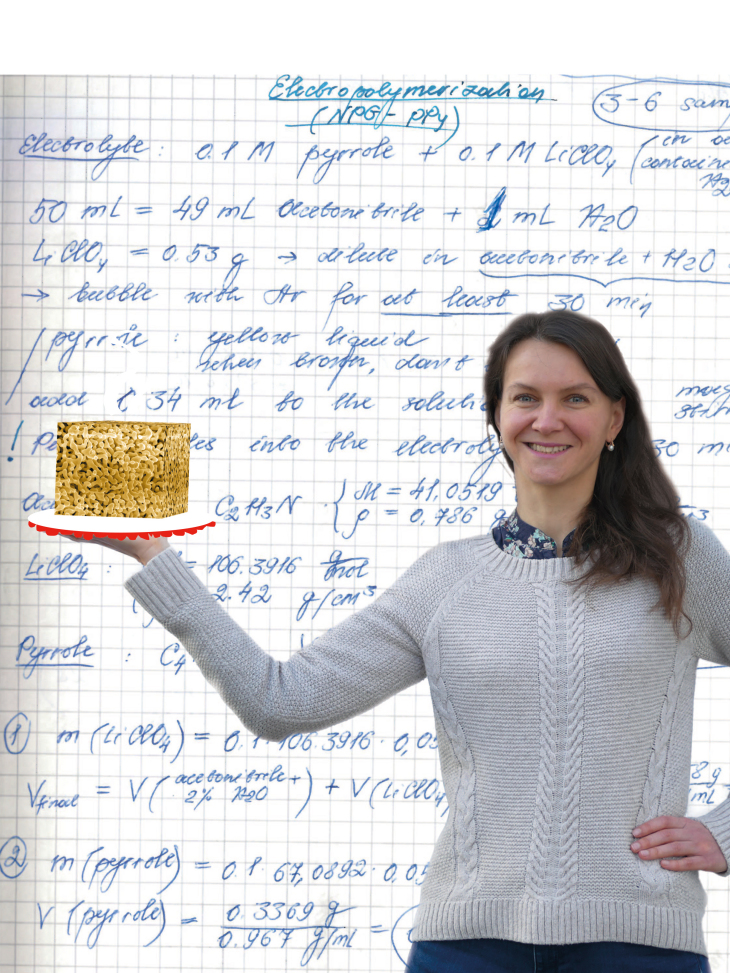 Electropolymerization
(NPG - PPy)
3-6 sam
Electrolyte : 0.1 M pyrrole + 0.1 M LiClO4 (in
containe
50 mL = 49 mL acetonitrile + 1 mL H2O
LiClO4 = 0.53 g → dilute in acetonitrile + H2O
→ bubble with Ar for at least 30 min
pyrrole : yellow liquid
when brown, don't
add 0.34 ml to the soluti
! into the electroly 30 m
C2H3N { M = 41,0519
ρ = 0,786 g
LiClO4 : = 106.3916 g/mol
2.42 g/cm3
Pyrrole : C4
① m (LiClO4) = 0.1 · 106.3916 · 0,05
Vfinal = V (acetonitrile + 2% H2O) + V (LiClO4
② m (pyrrole) = 0.1 · 67,0892 · 0,05
V (pyrrole) = 0.3369 g / 0.967 g/mL =